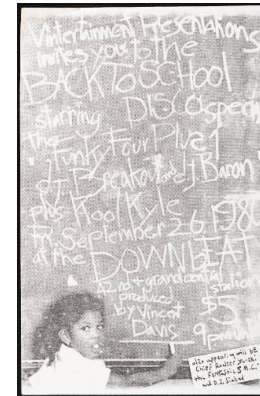 Vintertainment Presentations
invites you to the
BACK TO SCHOOL
starring DISCO special
the Funky Four Plus 1
DJ Breakout and DJ Baron
plus Kool Kyle
Fri. September 26, 1980
at the DOWNBEAT
42nd + grand central station
produced $5
by Vincent
Davis 9pm
also appearing will be
Chief Rocker
the Fantastic 5 M.C.
and D.J.